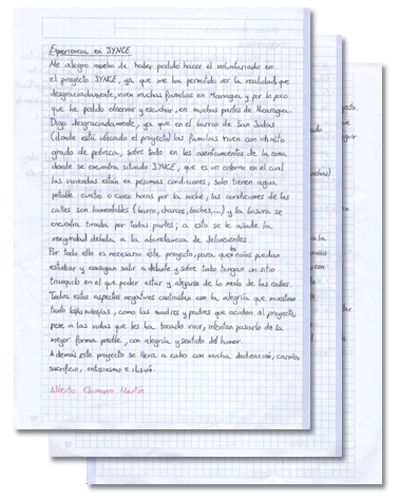 Experiencia en JYNCE
Me alegro mucho de haber podido hacer el voluntariado en
el proyecto JYNCE, ya que me ha permitido ver la realidad que
desgraciadamente, viven muchas familias en Managua y por lo poco
que he podido observar y escuchar, en muchas partes de Nicaragua.
Digo desgraciadamente, ya que en el barrio de San Judas
(donde está ubicado el proyecto) las familias viven con un alto
grado de pobreza, sobre todo en los asentamientos de la zona
donde se encuentra situado JYNCE, que es un entorno en el cual
las viviendas están en pésimas condiciones, solo tienen agua
potable cuatro o cinco horas por la noche, las condiciones de las
calles son lamentables (barro, charcos, baches,...) y la basura se
encuentra tirada por todas partes; a esto se le añade la
inseguridad debida a la abundancia de delincuentes.
Por todo ello es necesario este proyecto, para que los niños puedan
estudiar y consigan salir adelante y sobre todo tengan un sitio
tranquilo en el que poder estar y alejarse de lo malo de las calles.
Todos estos aspectos negativos contrastan con la alegría que muestran
tanto los/as niños/as, como las madres y padres que acuden al proyecto,
pese a las vidas que les ha tocado vivir, intentan pasarlo de la
mejor forma posible, con alegría y sentido del humor.
Además este proyecto se lleva a cabo con mucha dedicación, cariño,
sacrificio, entusiasmo e ilusión.
Alberto Martín